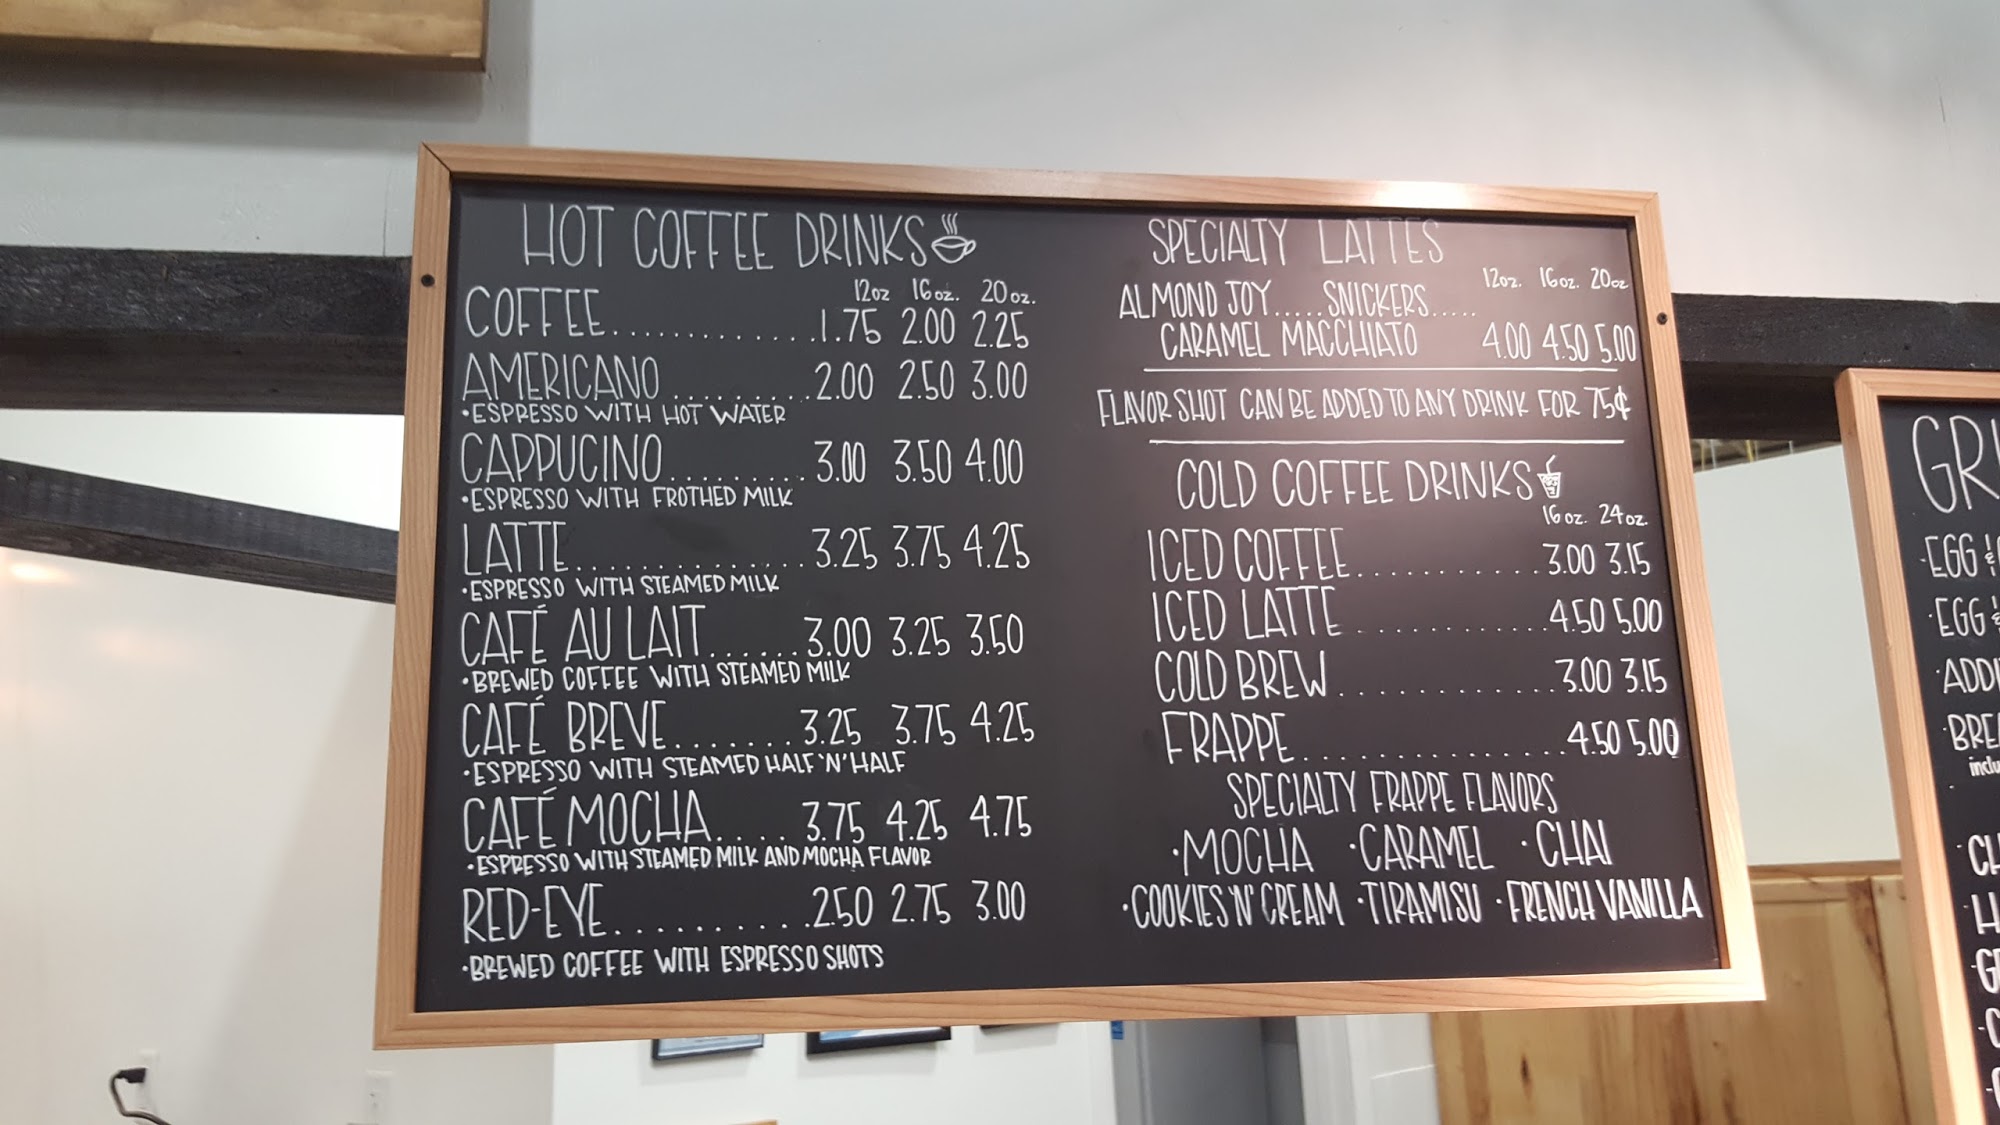 HOT COFFEE DRINKS
12oz 16oz. 20oz.
COFFEE.............1.75 2.00 2.25
AMERICANO..........2.00 2.50 3.00
•ESPRESSO WITH HOT WATER
CAPPUCINO..........3.00 3.50 4.00
•ESPRESSO WITH FROTHED MILK
LATTE...............3.25 3.75 4.25
•ESPRESSO WITH STEAMED MILK
CAFÉ AU LAIT......3.00 3.25 3.50
•BREWED COFFEE WITH STEAMED MILK
CAFÉ BREVE.......3.25 3.75 4.25
•ESPRESSO WITH STEAMED HALF 'N' HALF
CAFÉ MOCHA....3.75 4.25 4.75
•ESPRESSO WITH STEAMED MILK AND MOCHA FLAVOR
RED-EYE...........2.50 2.75 3.00
•BREWED COFFEE WITH ESPRESSO SHOTS
SPECIALTY LATTES
12oz. 16oz. 20oz
ALMOND JOY.....SNICKERS.....
CARAMEL MACCHIATO 4.00 4.50 5.00
FLAVOR SHOT CAN BE ADDED TO ANY DRINK FOR 75¢
COLD COFFEE DRINKS
16oz. 24oz.
ICED COFFEE...........3.00 3.15
ICED LATTE............4.50 5.00
COLD BREW............3.00 3.15
FRAPPE...............4.50 5.00
SPECIALTY FRAPPE FLAVORS
•MOCHA •CARAMEL •CHAI
•COOKIES 'N' CREAM •TIRAMISU •FRENCH VANILLA
•EGG &
•EGG &